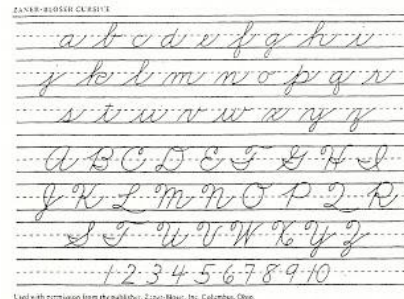 ZANER-BLOSER CURSIVE
a b c d e f g h i
j k l m n o p q r
s t u v w x y z
A B C D E F G H I
J K L M N O P Q R
S T U V W X Y Z
1 2 3 4 5 6 7 8 9 10
Used with permission from the publisher, Zaner-Bloser, Inc. Columbus, Ohio.